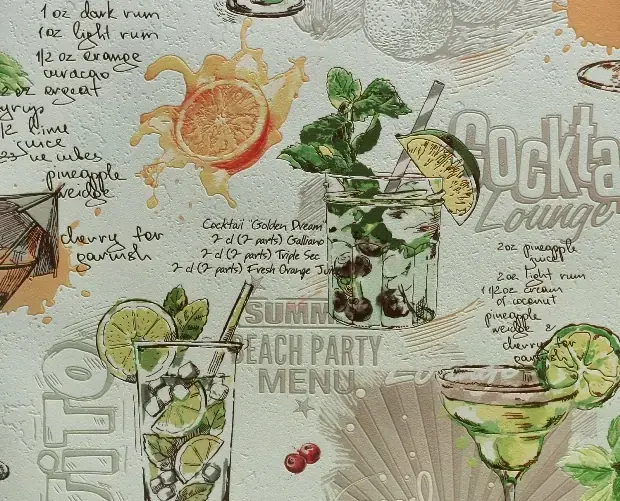 1 oz dark rum
1 oz light rum
1/2 oz orange
curacao
2 oz orgeat
syrup
1/2 lime
juice
ice cubes
pineapple
weidge
cherry for
garnish
Cocktail "Golden Dream"
2 cl (2 parts) Galliano
2 cl (2 parts) Triple Sec
2 cl (2 parts) Fresh Orange Jui
Cockta
Lounge
2 oz pineapple
juice
2 oz light rum
1 1/2 oz cream
of coconut
pineapple
weidge &
cherry for
garnish
SUMM
BEACH PARTY
MENU
iTO